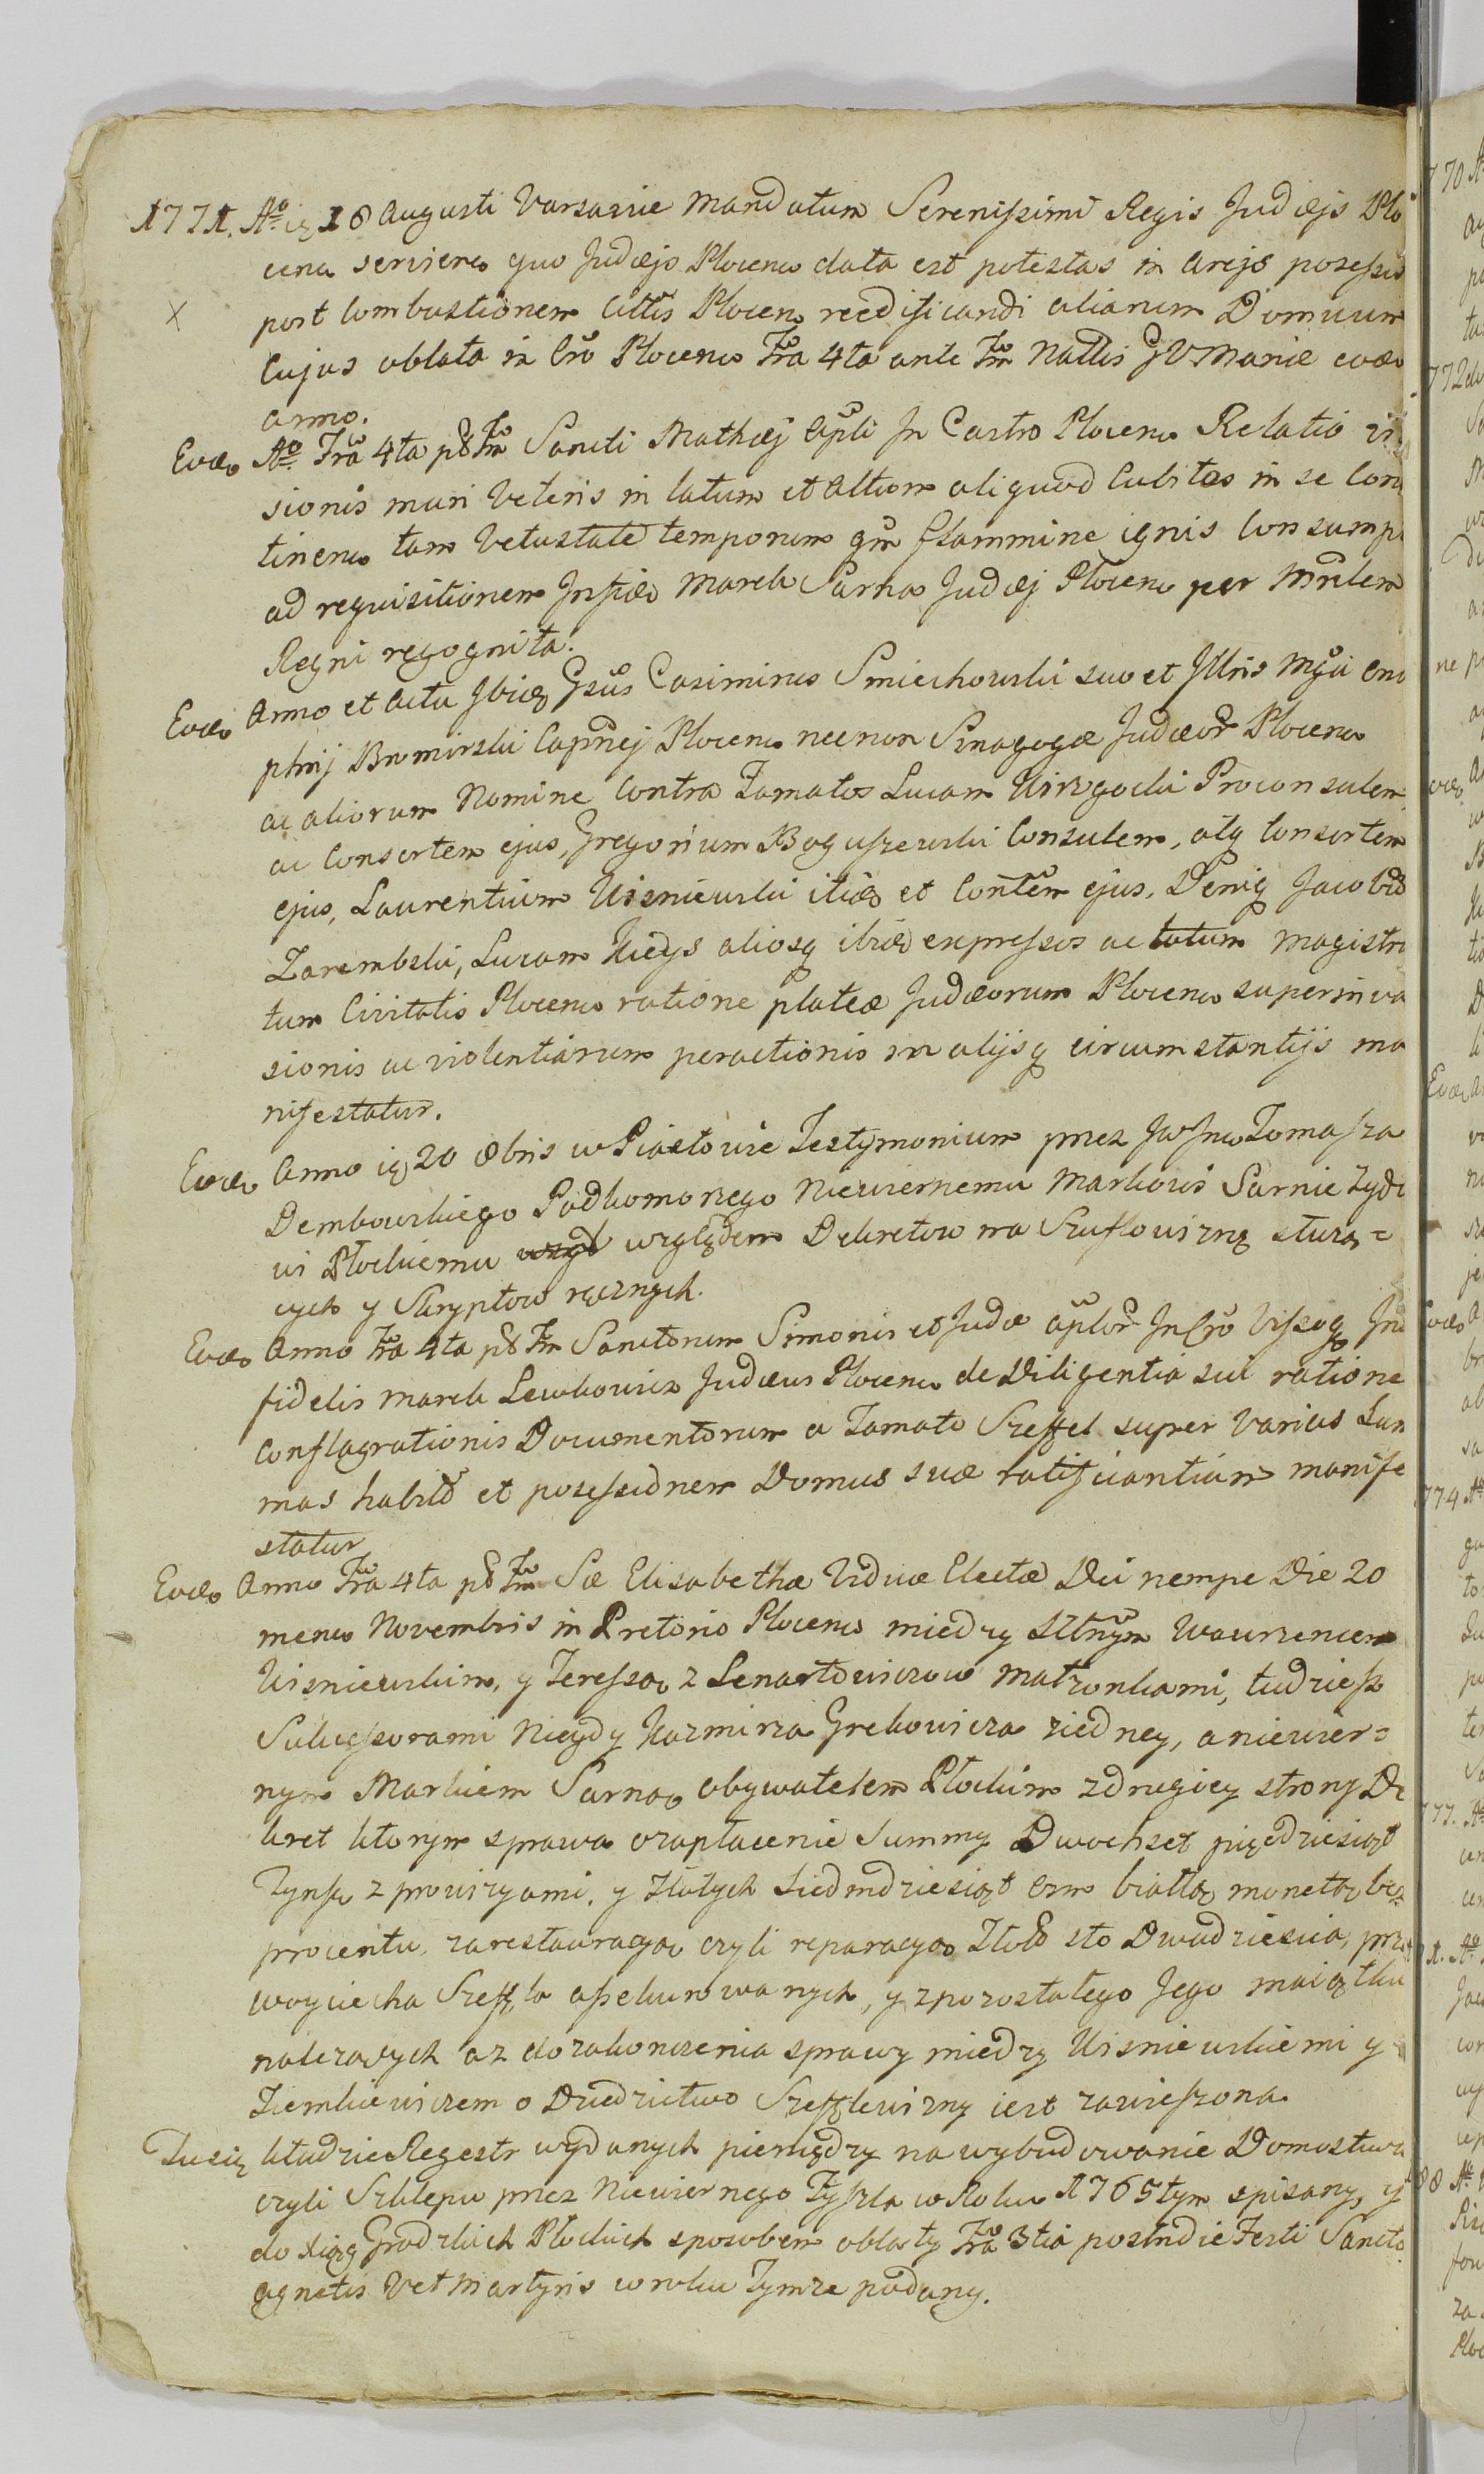 1771. Aō iꝗ 18 Augusti Varsaviæ Mandatum Serenissimi Regis Judæis Plo
cen serviens quo Judæis Plocen data est potestas in areis posses
post Combustionem Cittis Plocen reedificandi aliarum Domuum
Cujus oblata in Cro Plocen Fra 4ta ante Fm Nattis BVMariæ eod
anno.
Eod Aō Fra 4ta pt Fm Sancti Mathæj Apli In Castro Plocen Relatio vi
sionis muri Veteris in latum et Altum aliquod Cubitos in se Con
tinen tam Vetustate temporum qm flammine ignis Consumpt
ad requisitionem Infid Marek Sarna Judæj Plocen per Mnlem
Regni regognita.
Eod Anno et Actu Ibid Gsus Casimirus Smiechowski suo et Illris Mgci Ono
phrij Bromirski Capnej Plocen necnon Sinagogæ Judæor Plocen
ac aliorum Nomine Contra Famatos Lucam Wirzgocki Proconsulem
ac Consortem ejus, Gregorium Boguszewski Consulem, atq Consortem
ejus, Laurentium Wisniewski itid et Contem ejus, Deniq Jacob
Zarembski, Lucam Kiedys aliosq ibid expressos ac totum Magistra
tum Civitatis Plocen ratione plateæ Judæorum Plocen superinva
sionis ac violentiarum peractionis in alijsq circumstantijs ma
nifestatur.
Eod Anno iꝗ 20 8bris w Piastowie Testymonium przez JwJm Tomasza
Dembowskiego Podkomorzego Niewiernemu Markowi Sarnie Zydo
wi Płockiemu wzgl względem Dekretow na Szuflowiznę sturzą=
cych y Skryptow ręcznych.
Eod Anno Fra 4ta pt Fm Sanctorum Simonis et Judæ Aplor In Cro Vissog In
fidelis Marek Lewkowicz Judæus Plocen de Diligentia sui ratione
Conflagrationis Documentorum a Famato Szeffel super Varias Sum
mas habit et possessionem Domus suæ ratificantium manife
statur
Eod Anno Fra 4ta pt Fm Sæ Elisabethæ Viduæ Electæ Dei nempe Die 20
mens Novembris in Pretorio Plocen miedzy Sltnym Wawrzencem
Wisniewskim, y Teressą z Lenartowiczow Małzonkami, tudziesz
Sukcessorami Niegdy Kazmirza Grekowicza ziedney, a niewier=
nym Markiem Sarną obywatelem Płockim zdrugiey strony De
kret ktorym sprawa ozapłacenie Summy Dwochset pięcdziesiąt
Tynfw z prowizyami, y Złotych Siedmdziesiąt Czm białłą monetą bez
procentu, zarestauracyą czyli reparacyą Złoto sto Dwadziescia, prze
woyciecha Szeffla assekurowanych, y zpozostałego Jego maiątku
nalezących az dozakonczenia sprawy miedzy Wisniewskiemi y
Ziemkiewiczem o Dziedzictwo Szefflewizny iest zawieszona
Tusię kładzie Regestr wydanych pieniędzy na wybudowanie Domostwa
czyli Szklepu przez Niewiernego Zyszla w Roku 1765tym spisany, y
do Xiąg Grodzkich Płockich sposobem oblaty Fra 3tia postridie Festi Sanctæ
Agnetis V et Martyris w roku Tymze podany.